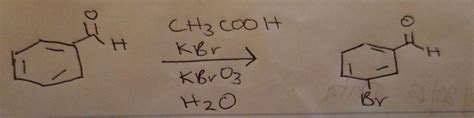 O
H
CH3COOH
KBr
KBrO3
H2O
O
H
Br